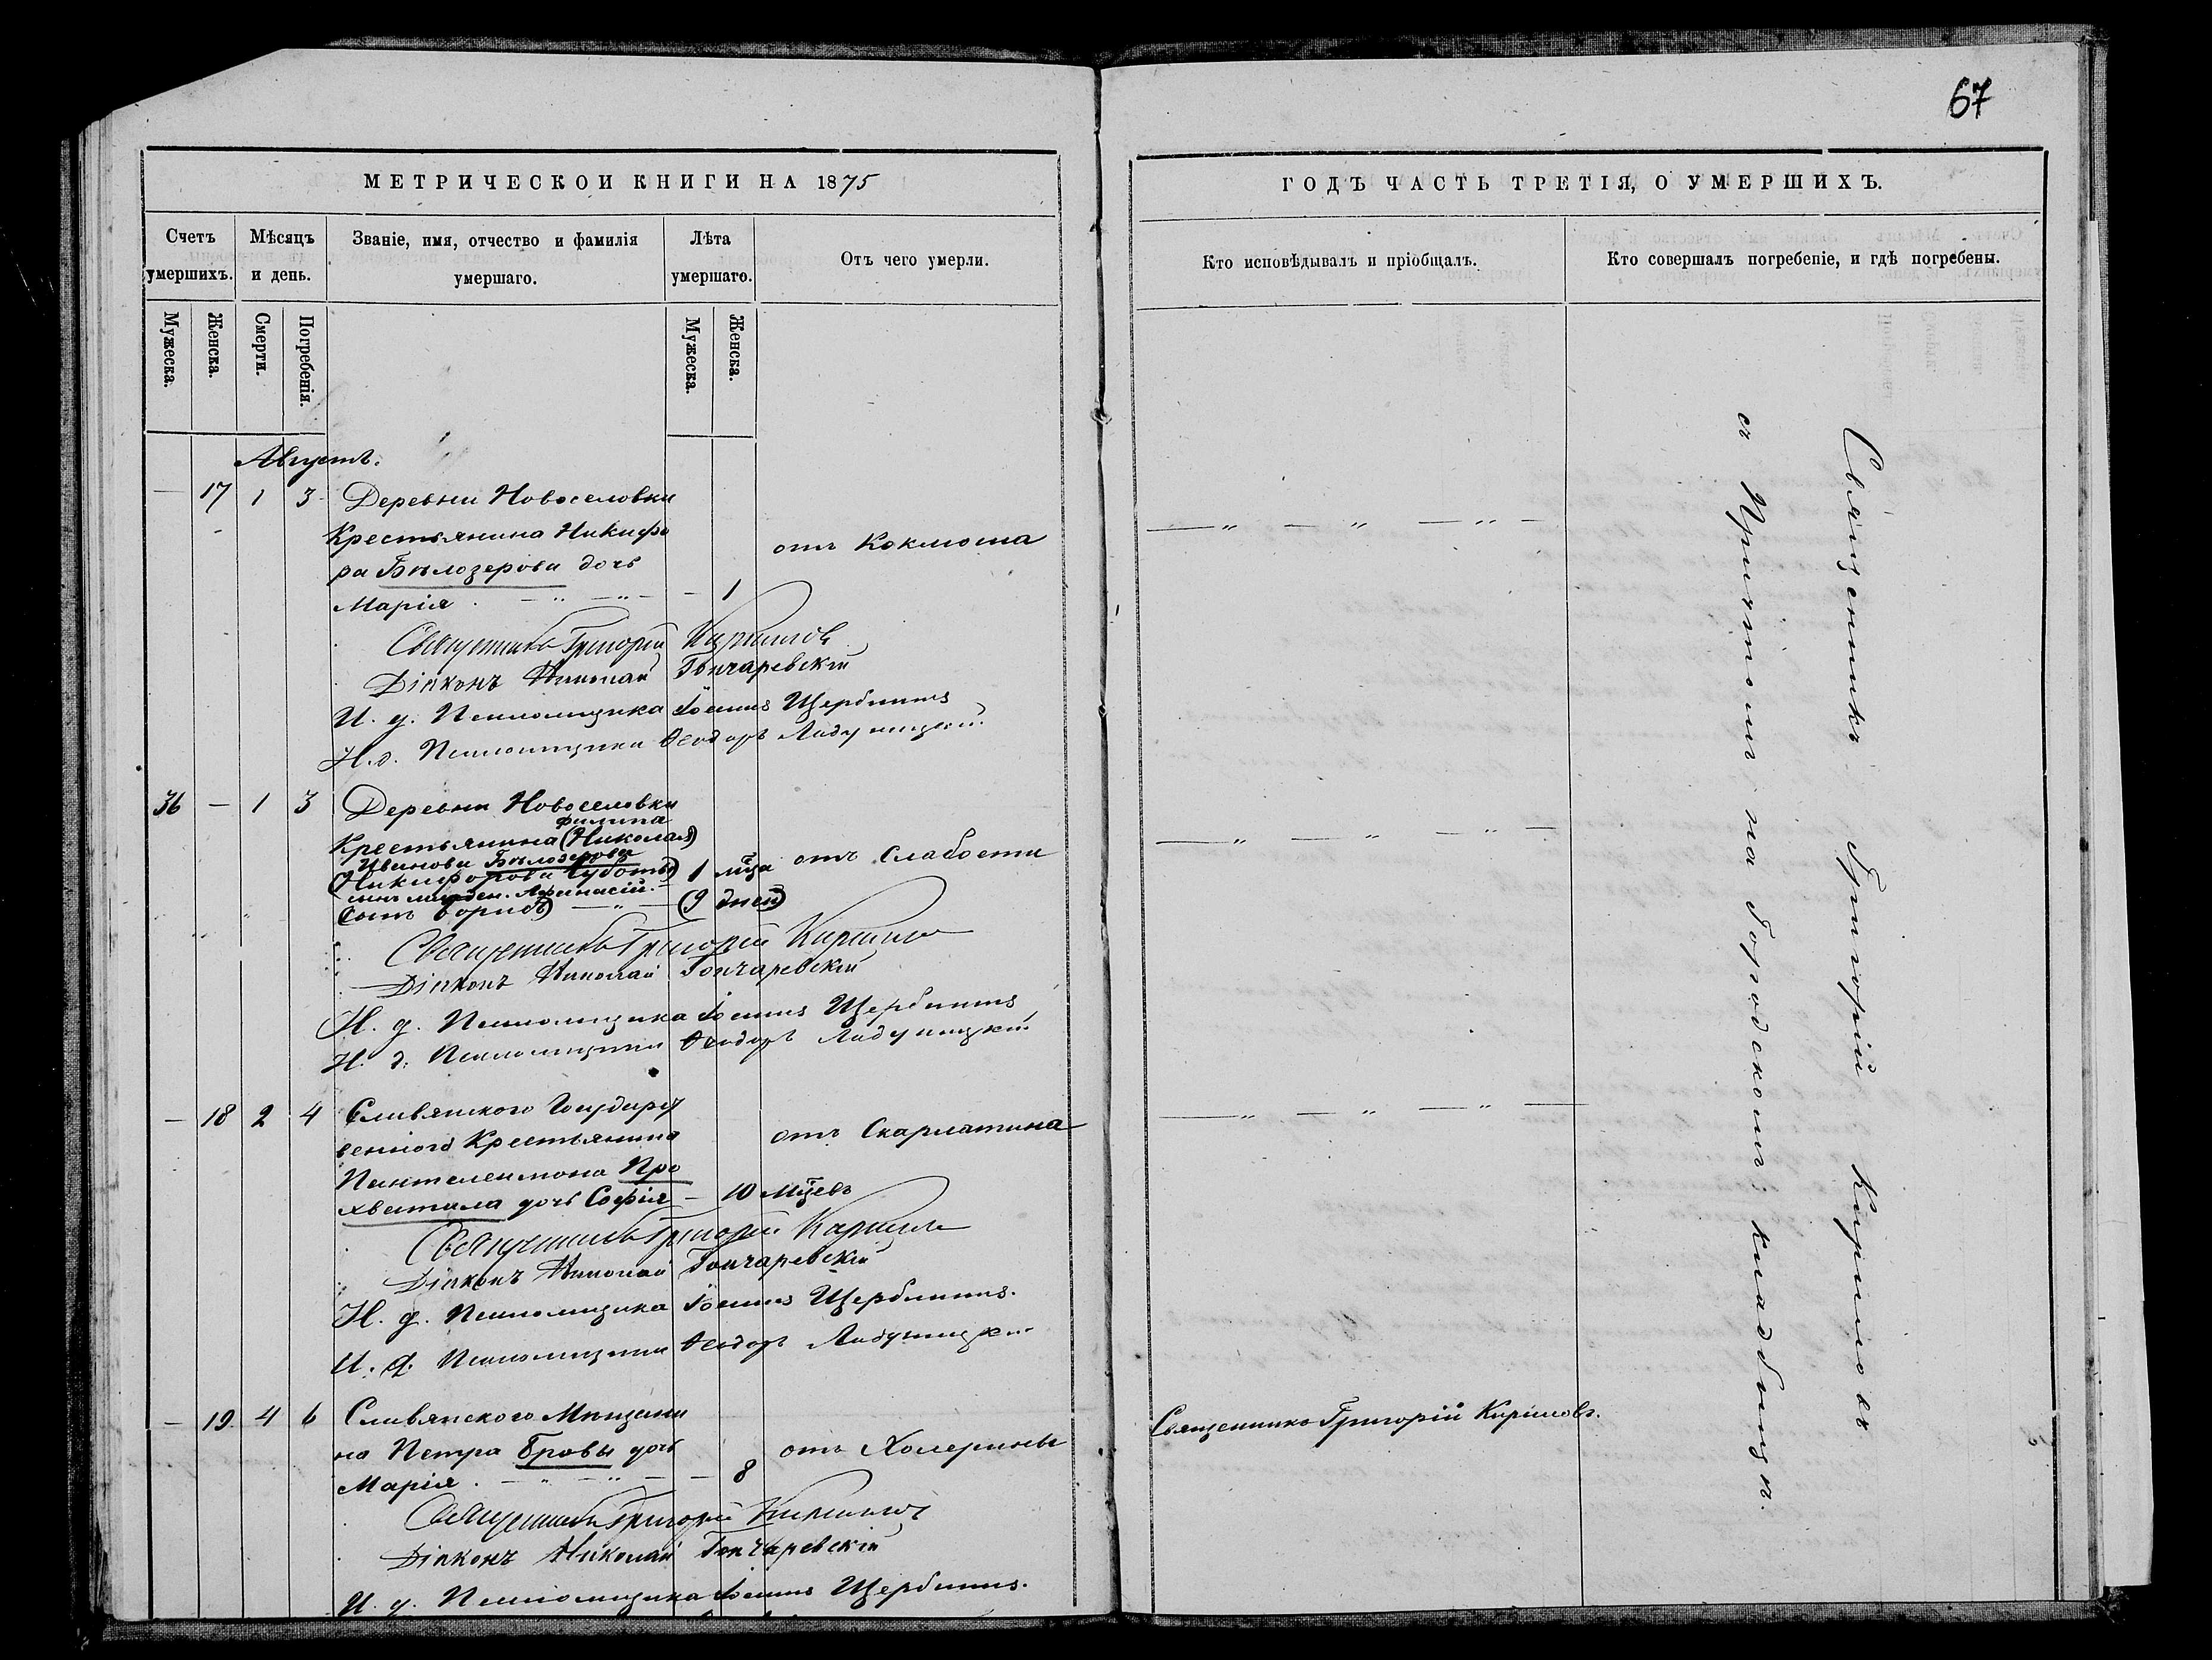 67
МЕТРИЧЕСКОИ КНИГИ НА 1875
Счетъ умершихъ.
Мѣсяцъ и день.
Званіе, имя, отчество и фамилія умершаго.
Лѣта умершаго.
Отъ чего умерли.
Мужеска.
Женска.
Смерти.
Погребенія.
Мужеска.
Женска.
Августъ.
— 17 1 3 Деревни Новоселовки
Крестьянина Никифо
ра Бѣлозерова дочь
отъ Коклюша
Марія . — „ — „ — — 1
Священникъ Григорій Кириловъ
Діаконъ Николай Гончаревскій
И. д. Псаломщика Іоаннъ Щербина
И. д. Псаломщика Ѳеодоръ
36 — 1 3 Деревни Новоселовки
Филипа
Крестьянина (Николая)
Иванова Бѣлозерова
(Никифорова Чуботъ) 1 мца отъ Слабости
сынъ младен. Афанасій.
(сынъ Борисъ) — „ — (9 дней)
Священникъ Григорій Кириловъ
Діаконъ Николай Гончаревскій
И. д. Псаломщика Іоаннъ Щербина
И. д. Псаломщика Ѳеодоръ
— 18 2 4 Славянского Государст
венного Крестьянина
отъ Скарлатина
Пантелеимона Про
хватала дочь Софія — 10 мцевъ
Священникъ Григорій Кириловъ
Діаконъ Николай Гончаревскій
И. д. Псаломщика Іоаннъ Щербина.
И. д. Псаломщика Ѳеодоръ
— 19. 4 6 Славянского Мѣщани
на Петра Бровы дочь
отъ Холерины
Марія . — „ — „ — — 8
Священникъ Григорій Кириловъ
Діаконъ Николай Гончаревскій
И. д. Псаломщика Іоаннъ Щербина.
ГОДЪ ЧАСТЬ ТРЕТІЯ, О УМЕРШИХЪ.
Кто исповѣдывалъ и пріобщалъ.
Кто совершалъ погребеніе, и гдѣ погребены.
— „ — „ — „ —
— „ — „ — „ —
— „ — „ — „ —
Священникъ Григорій Кириловъ.
Священникъ Григорій Кириловъ
съ Причтомъ на Городскомъ кладбищѣ.